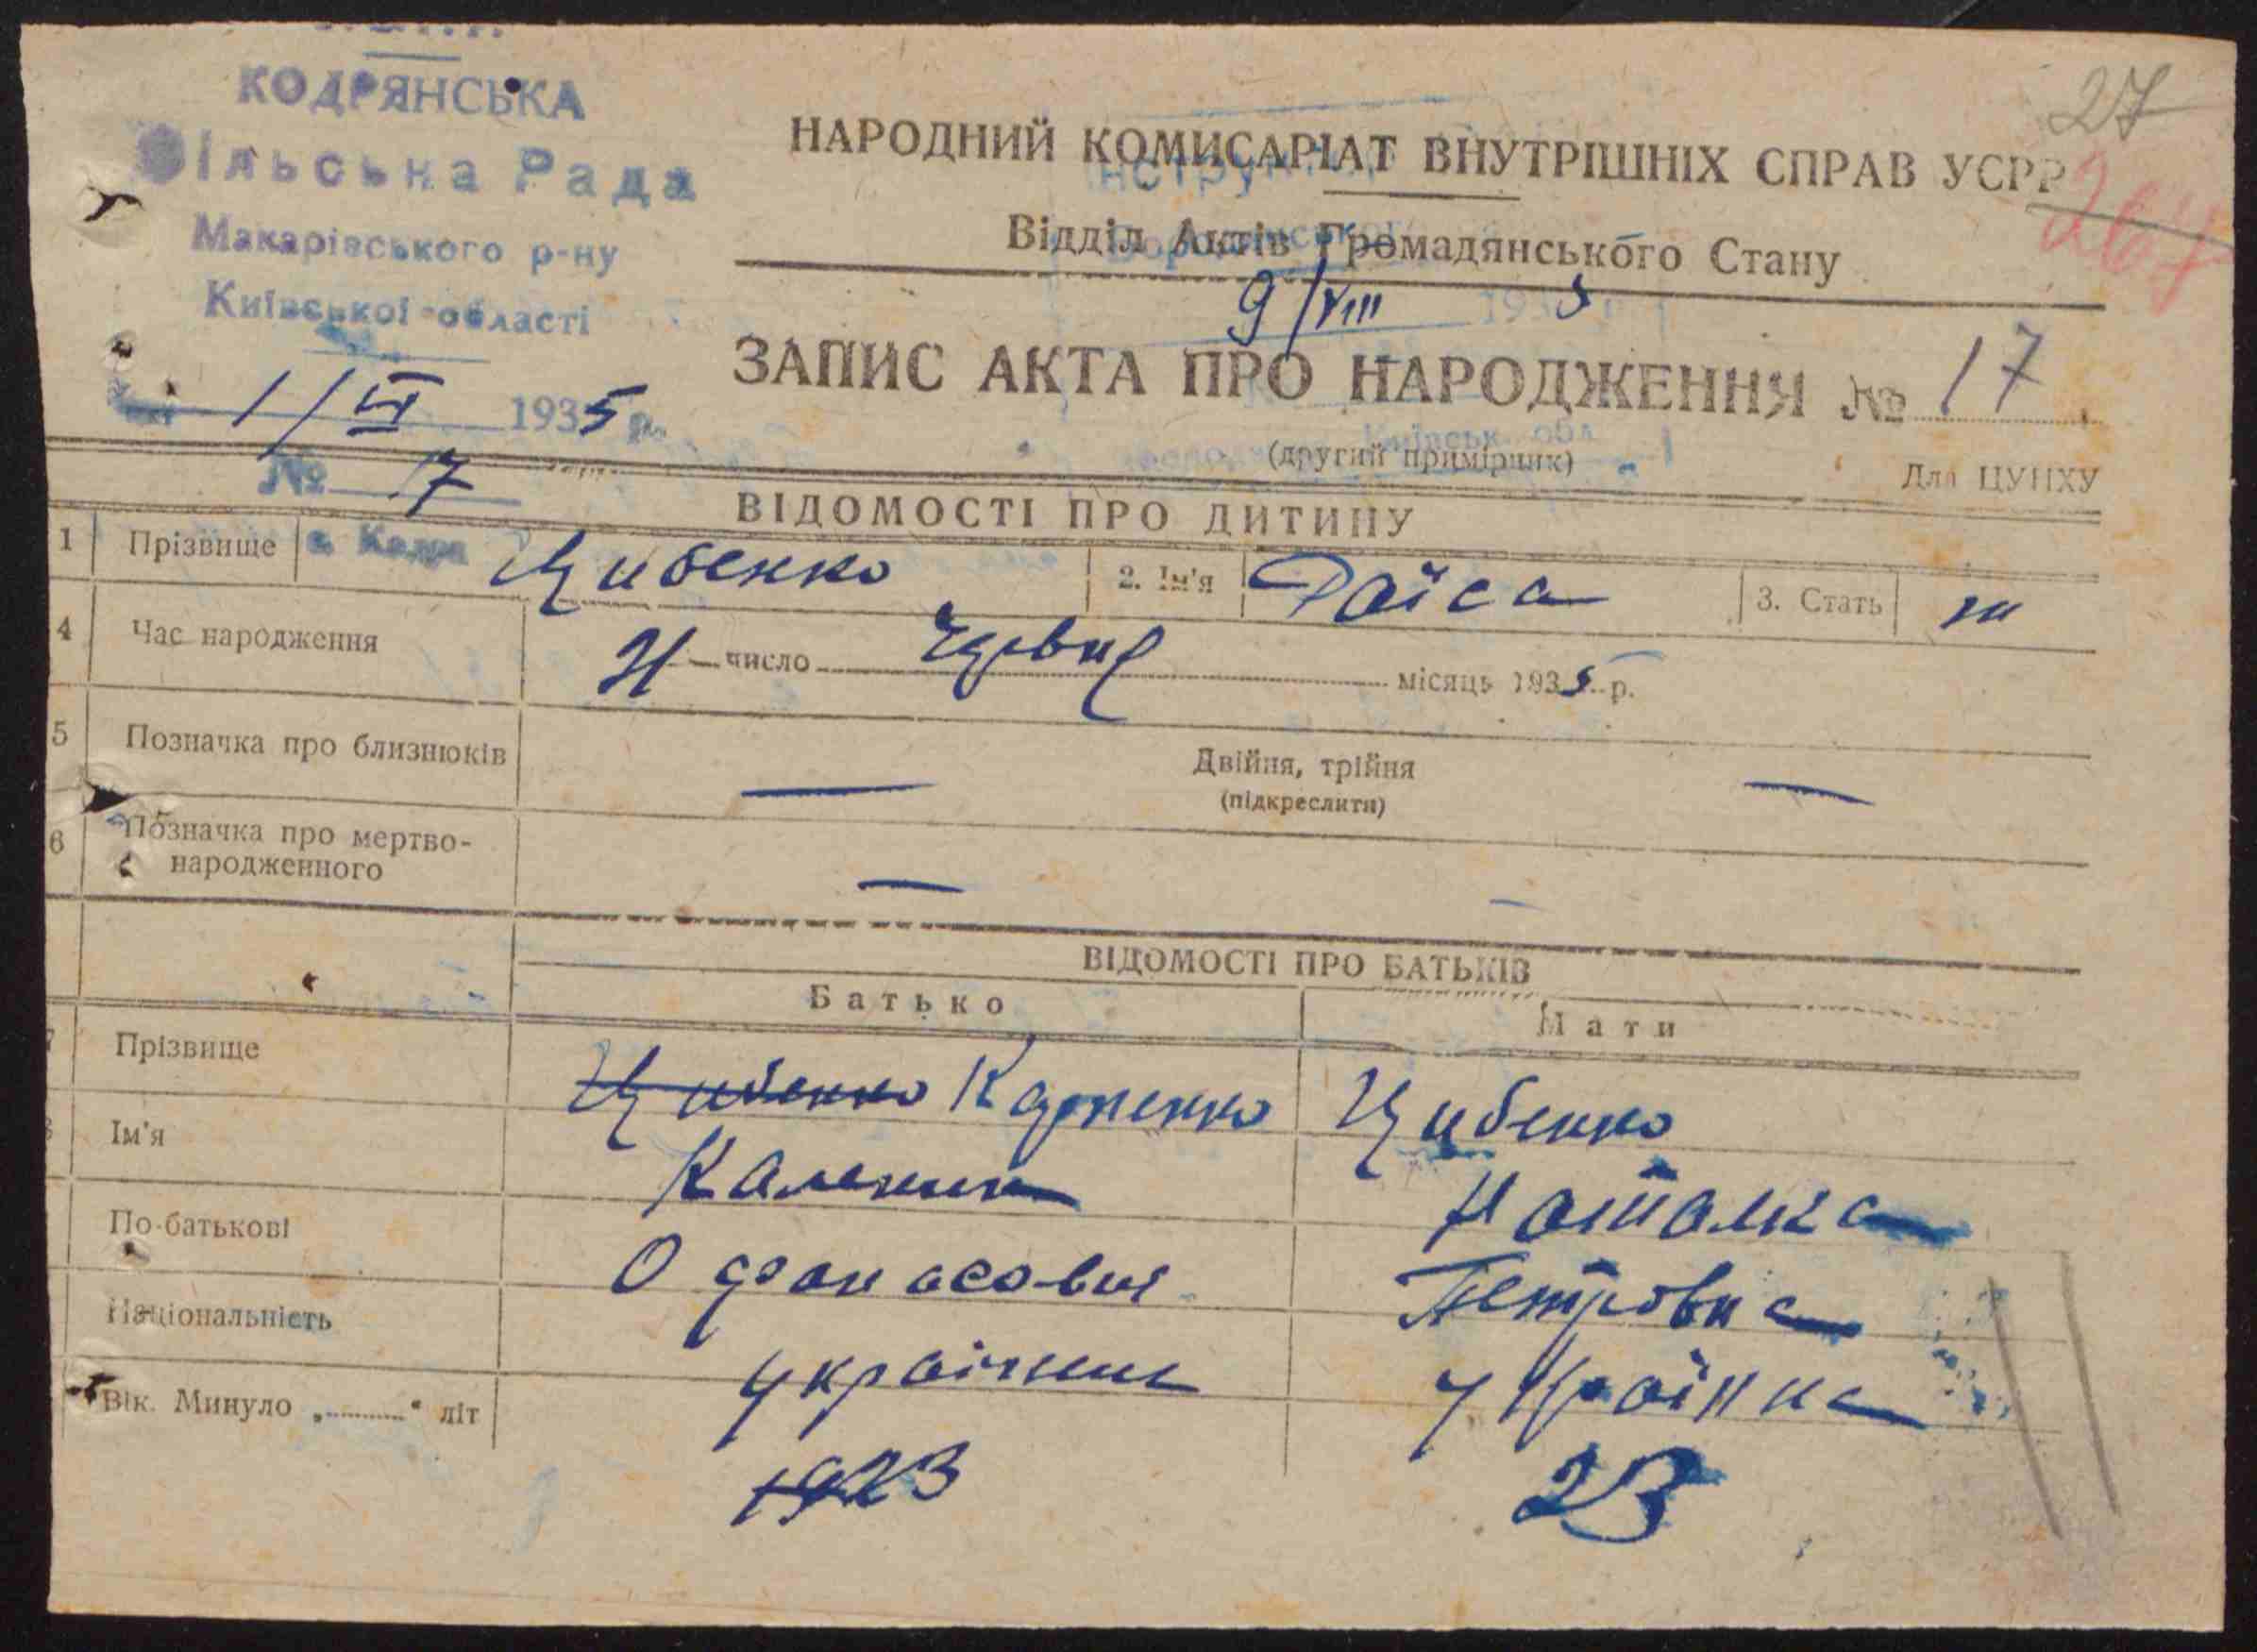 КОДРЯНСЬКА
Сільська Рада
Макарівського р-ну
Київської області
1/VI 1935 р.
№ 17
с. Кодра
27
НАРОДНИЙ КОМИСАРІАТ ВНУТРІШНІХ СПРАВ УСРР
267
Відділ Актів Громадянського Стану
9/VIII 1935
ЗАПИС АКТА ПРО НАРОДЖЕННЯ № 17
Київськ. обл.
(другий примірник)
Для ЦУНХУ
ВІДОМОСТІ ПРО ДИТИНУ
1 Прізвище Цибенко 2. Ім'я Раїса 3. Стать ж
4 Час народження число місяць 1935 р.
5 Позначка про близнюків — Двійня, трійня —
(підкреслити)
6 Позначка про мертво-
народженного —
ВІДОМОСТІ ПРО БАТЬКІВ
Батько Мати
7 Прізвище Цибенко Карпенко Цибенко
Ім'я Каленик Наталка
По-батькові Офанасович Петровна
Національність українець українка
Вік. Минуло „..........“ літ 1923 23